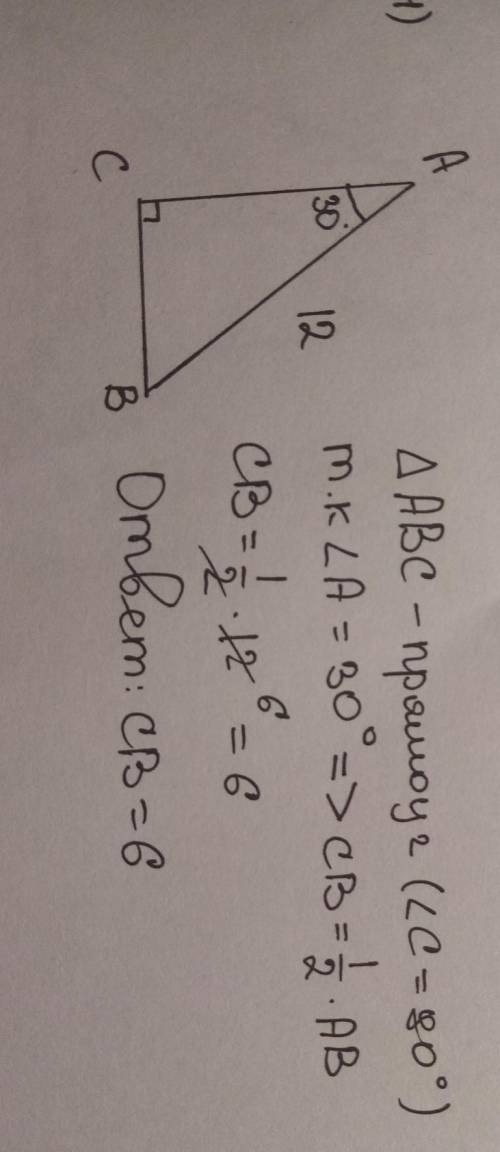 1)
A
30°
12
C
B
Δ ABC - прямоуг (∠C = 90°)
т.к ∠A = 30° => CB = 1/2 · AB
CB = 1/2 · 12 6 = 6
Ответ: CB = 6